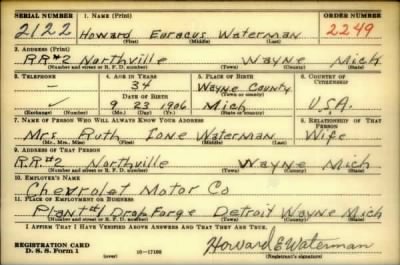 SERIAL NUMBER 1. NAME (Print) ORDER NUMBER
2122 Howard Earacus Waterman 2249
(First) (Middle) (Last)
2. ADDRESS (Print)
RR#2 Northville Wayne Mich
(Number and street or R. F. D. number) (Town) (County) (State)
3. TELEPHONE 4. AGE IN YEARS 5. PLACE OF BIRTH 6. COUNTRY OF CITIZENSHIP
– 34 Wayne County
DATE OF BIRTH (Town or county)
– 9 23 1906 Mich U.S.A.
(Exchange) (Number) (Mo.) (Day) (Yr.) (State or country)
7. NAME OF PERSON WHO WILL ALWAYS KNOW YOUR ADDRESS 8. RELATIONSHIP OF THAT PERSON
Mrs Ruth Ione Waterman Wife
(Mr., Mrs., Miss) (First) (Middle) (Last)
9. ADDRESS OF THAT PERSON
RR#2 Northville Wayne Mich
(Number and street or R. F. D. number) (Town) (County) (State)
10. EMPLOYER'S NAME
Chevrolet Motor Co
11. PLACE OF EMPLOYMENT OR BUSINESS
Plant #1 Drop Forge Detroit Wayne Mich
(Number and street or R. F. D. number) (Town) (County) (State)
I AFFIRM THAT I HAVE VERIFIED ABOVE ANSWERS AND THAT THEY ARE TRUE.
REGISTRATION CARD Howard E Waterman
D. S. S. Form 1 (over) 16—17105 (Registrant's signature)